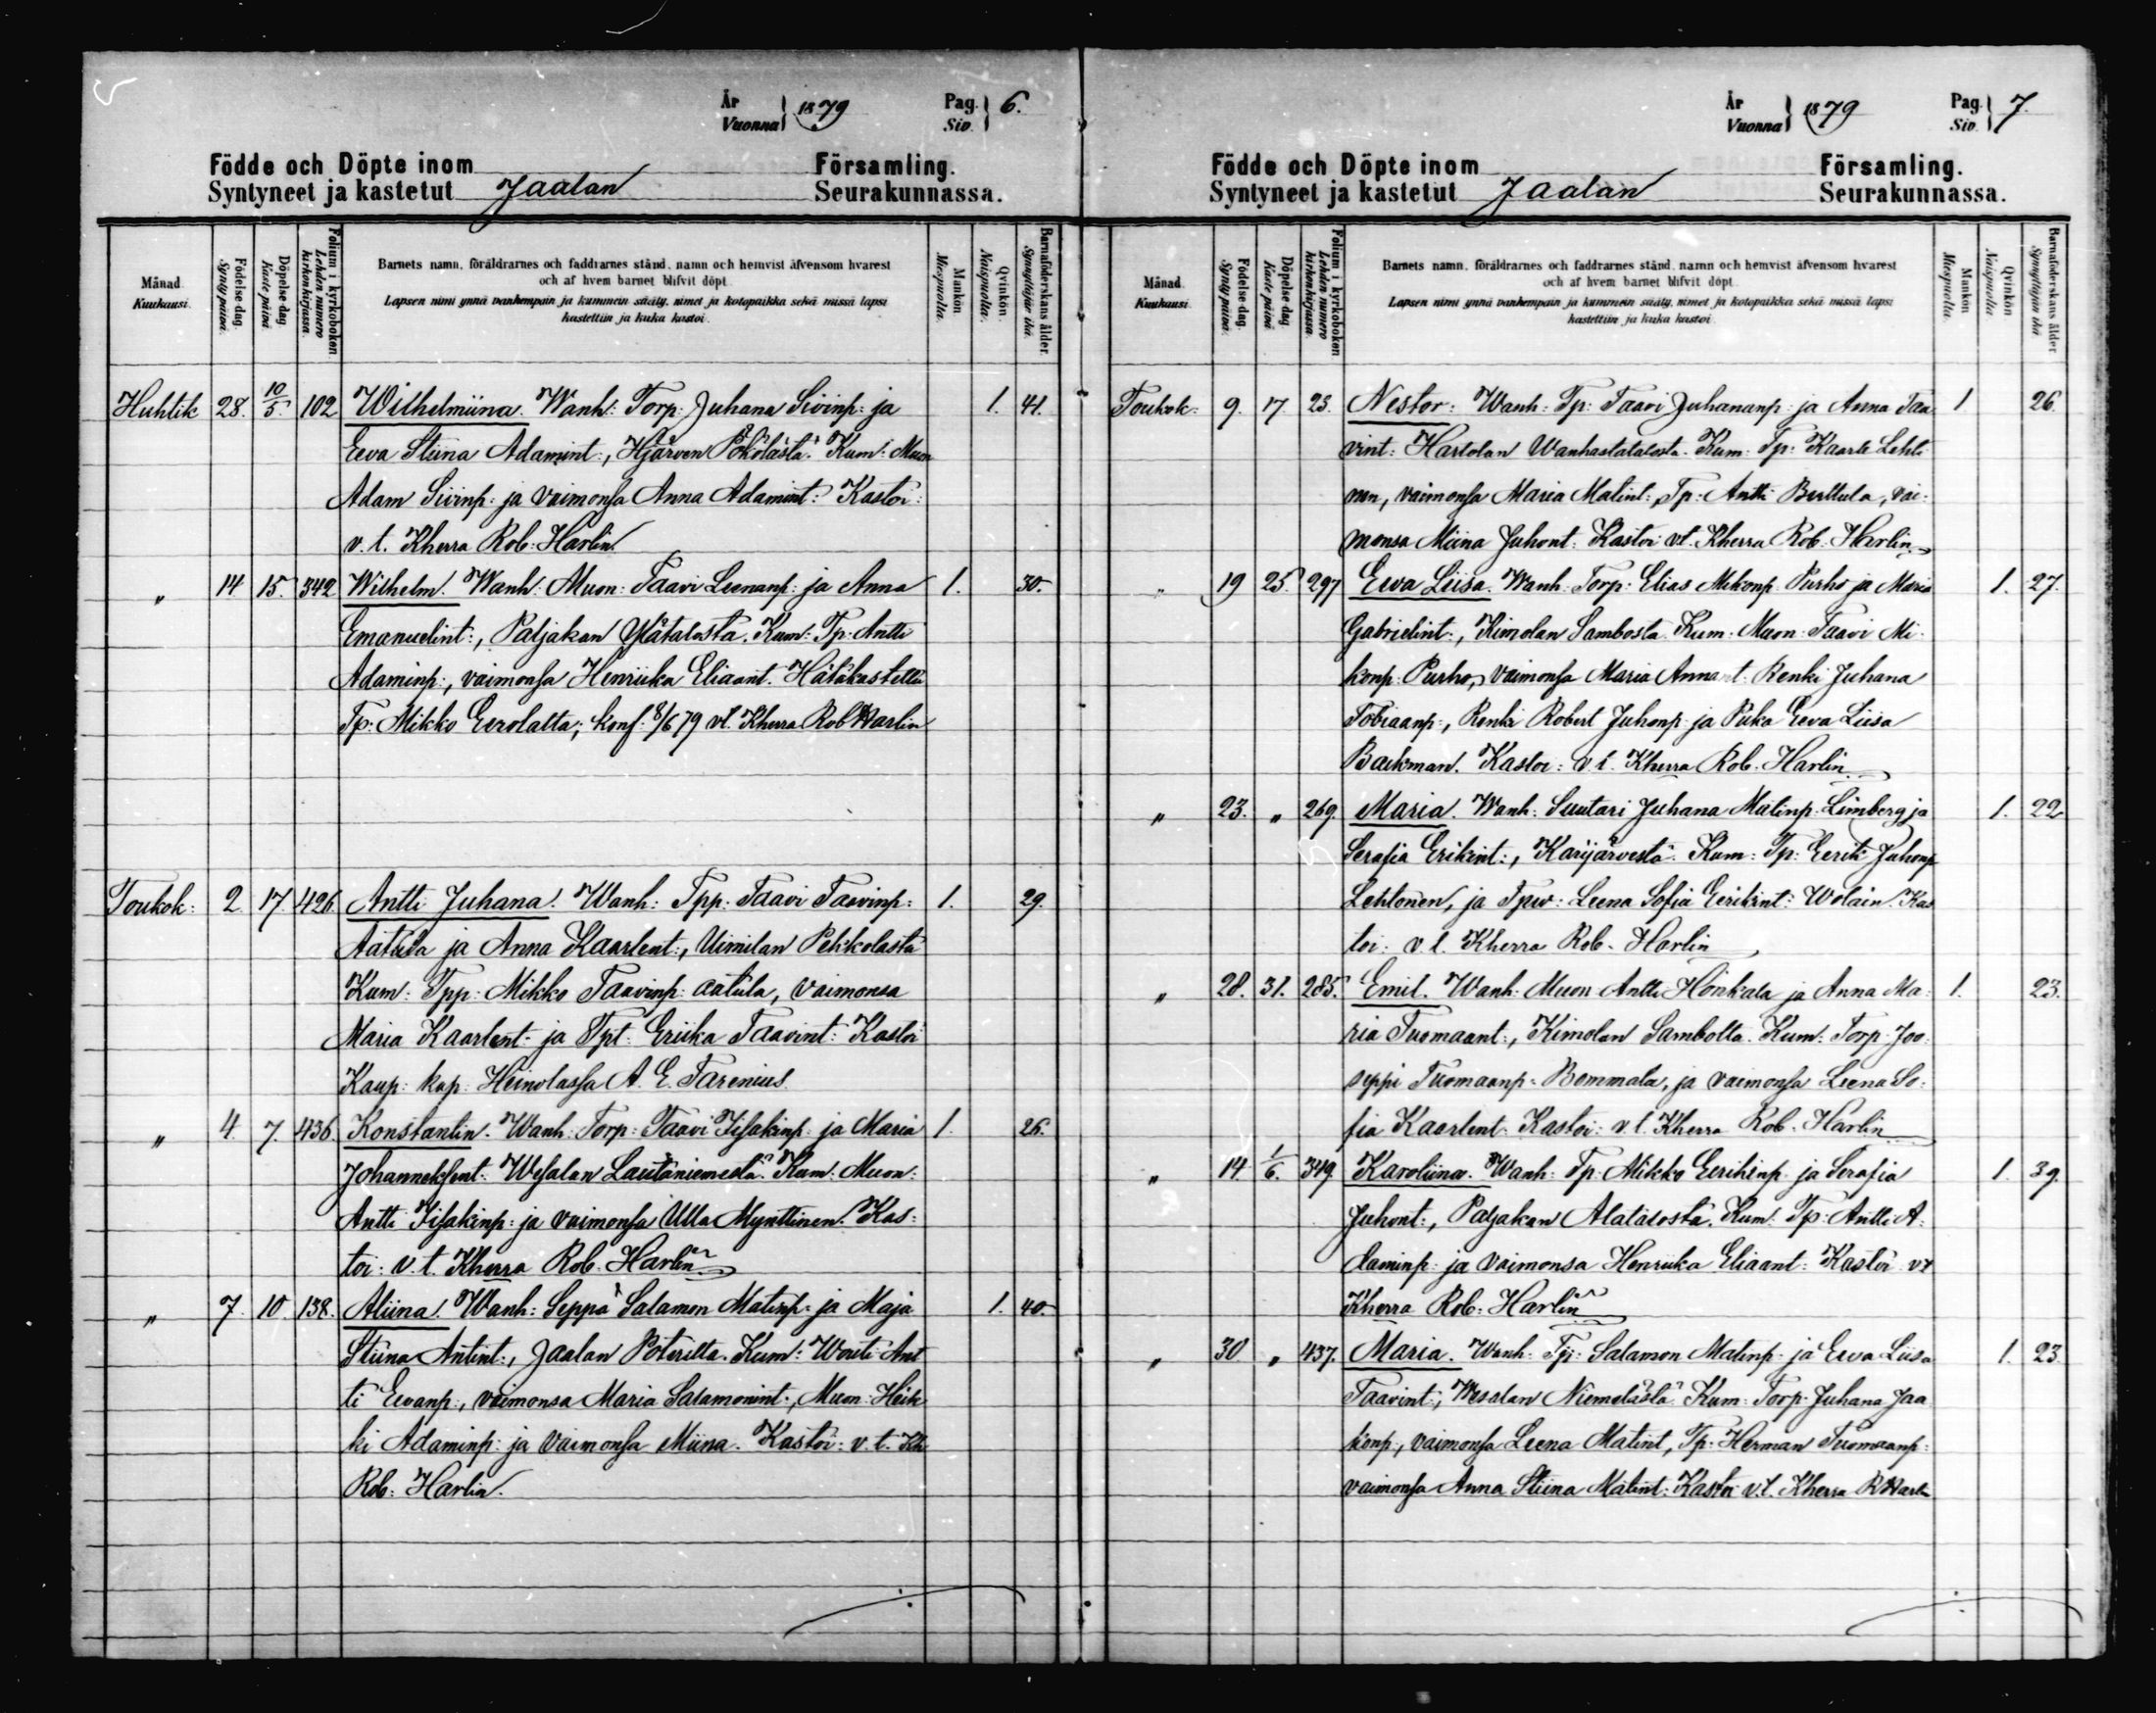 År Vuonna 1879 Pag. Siv. 6.
Födde och Döpte inom Församling.
Syntyneet ja kastetut Jaalan Seurakunnassa.
Månad Kuukausi. Födelse-dag. Synty päivä. Döpelse-dag Kaste päivä Folium i kyrkoboken Lehden numero kirkonkirjassa. Barnets namn, föräldrarnes och faddrarnes stånd, namn och hemvist äfvensom hvarest Mankön Miespuolta. Qvinkön Naispuolta. Barnaföderskans ålder. Synnyttäjän ikä.
och af hvem barnet blifvit döpt.
Lapsen nimi ynnä vanhempain ja kummein sääty, nimet ja kotopaikka sekä missä lapsi
kastettiin ja kuka kastoi.
Huhtik 28. 10/5. 102 Wilhelmiina. Wanh: Torp: Juhana Sivinp: ja 1. 41.
Eeva Stiina Adamint:, Hjärven Pökölästä. Kum: Muon
Adam Sivinp: ja vaimonsa Anna Adamint: Kastoi:
v. t. Kherra Rob: Harlin.
" 14 15. 342 Wilhelm. Wanh: Muon: Taavi Leenanp: ja Anna 1. 30.
Emanuelint:, Paljakan Ylätalosta. Kum: Tp: Antti
Adaminp:, vaimonsa Henriika Eliaant. Hätäkastettu
Tp: Mikko Eerolalta; konf. 8/6 79 vt. Kherra Rob Harlin
Toukok: 2. 17. 426. Antti Juhana. Wanh: Tpp: Taavi Taavinp: 1. 29.
Aatula ja Anna Kaarlent:, Uimilan Pekkolasta
Kum: Tpp: Mikko Taavinp: aatula, vaimonsa
Maria Kaarlent: ja Tpt: Eriika Taavint: Kastoi
Kaup: kap: Heinolassa A. E. Tarenius.
" 4. 7. 436. Konstantin. Wanh: Torp: Taavi Iisakinp: ja Maria 1. 26.
Johanneksent: Wesalan Lautaniemestä. Kum: Muon:
Antti Iisakinp: ja vaimonsa Ulla Mynttinen. Kas-
toi: v. t. Kherra Rob. Harlin
" 7. 10. 138. Aliina. Wanh: Seppä Salamon Matinp: ja Maja 1. 40.
Stiina Antint:, Jaalan Poterilta. Kum: Wouti Ant
ti Eevanp:, vaimonsa Maria Salamonint:, Muon: Heik
ki Adaminp: ja vaimonsa Miina. Kastoi: v. t. Kh
Rob: Harlin.
År Vuonna 1879 Pag. Siv. 7.
Födde och Döpte inom Församling.
Syntyneet ja kastetut Jaalan Seurakunnassa.
Månad Kuukausi. Födelse-dag. Synty päivä. Döpelse-dag. Kaste päivä Folium i kyrkoboken Lehden numero kirkonkirjassa. Barnets namn, föräldrarnes och faddrarnes stånd, namn och hemvist äfvensom hvarest Mankön Miespuolta. Qvinkön Naispuolta. Barnaföderskans ålder Synnyttäjän ikä.
och af hvem barnet blifvit döpt.
Lapsen nimi ynnä vanhempain ja kummein sääty, nimet ja kotopaikka sekä missä lapsi
kastettiin ja kuka kastoi.
Toukok: 9. 17. 23. Nestor. Wanh: Tp: Taavi Juhananp: ja Anna Taa 1 26.
vint: Hartolan Wanhastatalosta. Kum: Tp: Kaarle Lehti
nen, vaimonsa Maria Matint:, Tp: Antti Buttula, vai-
monsa Miina Juhont: Kastoi vt. Kherra Rob. Harlin
" 19 25. 297 Eeva Liisa. Wanh: Torp: Elias Mikonp: Purho ja Maria 1. 27.
Gabrielint:, Kimolan Sambosta. Kum: Muon: Taavi Mi-
konp: Purho, vaimonsa Maria Annant. Renki Juhana
Tobiaanp:, Renki Robert Juhonp: ja Piika Eeva Liisa
Backman. Kastoi: v. t. Kherra Rob. Harlin
" 23. " 269. Maria. Wanh: Suutari Juhana Matinp: Limberg ja 1. 22
Serafia Erikint:, Karijärvestä. Kum: Tp: Eerik Juhonp
Lehtonen, ja Tpw: Leena Sofia Eerikint: Wolain. Kas
toi: v. t. Kherra Rob. Harlin
" 28. 31. 285. Emil. Wanh: Muon Antti Honkala ja Anna Ma- 1. 23.
ria Tuomaant:, Kimolan Sambolta. Kum: Torp: Joo-
seppi Tuomaanp: Bommala, ja vaimonsa Leena So-
fia Kaarlent. Kastoi: v. t. Kherra Rob. Harlin
" 14. 1/6. 349. Karoliina. Wanh: Tp: Mikko Eerikinp: ja Serafia 1. 39.
Juhont:, Paljakan Alatalosta. Kum: Tp: Antti A-
daminp: ja vaimonsa Henriika Eliaant: Kastoi vt
Kherra Rob: Harlin
" 30 " 437. Maria. Wanh: Tp: Salamon Matinp: ja Eeva Liisa 1. 23.
Taavint:, Wesalan Niemelästä. Kum: Torp: Juhana Jaa
konp:, vaimonsa Leena Matint, Tp: Herman Tuomaanp:
vaimonsa Anna Stiina Matint: Kastoi v. t. Kherra R Harlin